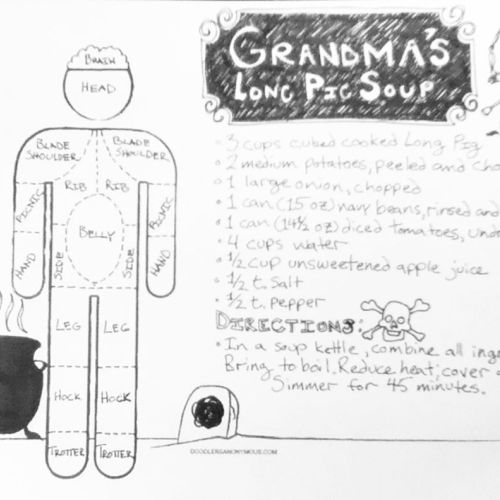 GRANDMA'S
LONG PIG SOUP
BRAIN
HEAD
BLADE SHOULDER
BLADE SHOULDER
RIB
RIB
PICNIC
PICNIC
BELLY
HAND
HAND
SIDE
SIDE
LEG
LEG
HOCK
HOCK
TROTTER
TROTTER
• 3 cups cubed cooked Long Pig
• 2 medium potatoes, peeled and cho
• 1 large onion, chopped
• 1 can (15 oz) navy beans, rinsed and
• 1 can (14½ oz) diced tomatoes, und
• 4 cups water
• ½ cup unsweetened apple juice
• ½ t. Salt
• ½ t. Pepper
DIRECTIONS:
• In a soup kettle, combine all ing
Bring to boil. Reduce heat; cover
Simmer for 45 minutes.
DOODLERSANONYMOUS.COM